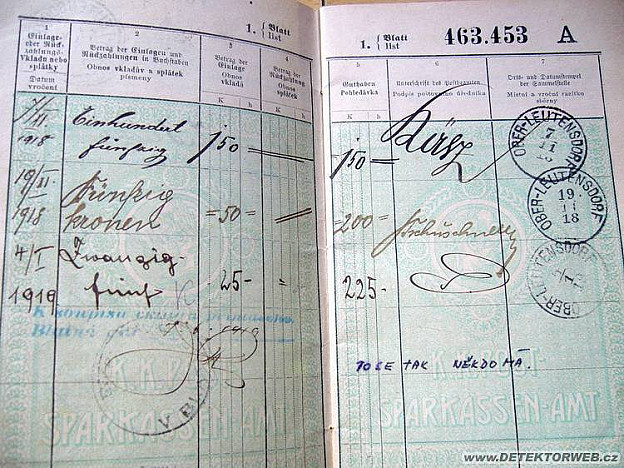 1. { Blatt
list
1
Einlage-
oder Rück-
zahlungs-
Vkladu nebo
splátky
Datum
vročení
2
Betrag der Einlagen und
Rückzahlungen in Buchstaben
Obnos vkladův a splátek
písmeny
3
Betrag der
Einlage
Obnos
vkladů
K h
4
Betrag der
Rückzahlung
Obnos
splátek
K h
7/XI
1918
Einhundert
fünfzig
150
19/XI
1918
Fünfzig
kronen
=50=
4/I
1919
Zwanzig-
fünf K
25-
K soupisu
K.K. POST
SPARKASSEN-AMT
1. { Blatt
list
463.453 A
5
Guthaben
Pohledávka
K h
6
Unterschrift des Postbeamten
Podpis poštovního úředníka
7
Orts- und Datumstempel
der Sammelstelle
Místní a vroční razítko
sběrny
150=
OBER-LEUTENSDORF
7
11
18
200=
OBER-LEUTENSDORF
19
11
18
225-
OBER-LEUTENSDORF
TO SE TAK NĚKDO MÁ.
K.K. POST
SPARKASSEN-AMT
WWW.DETEKTORWEB.cz